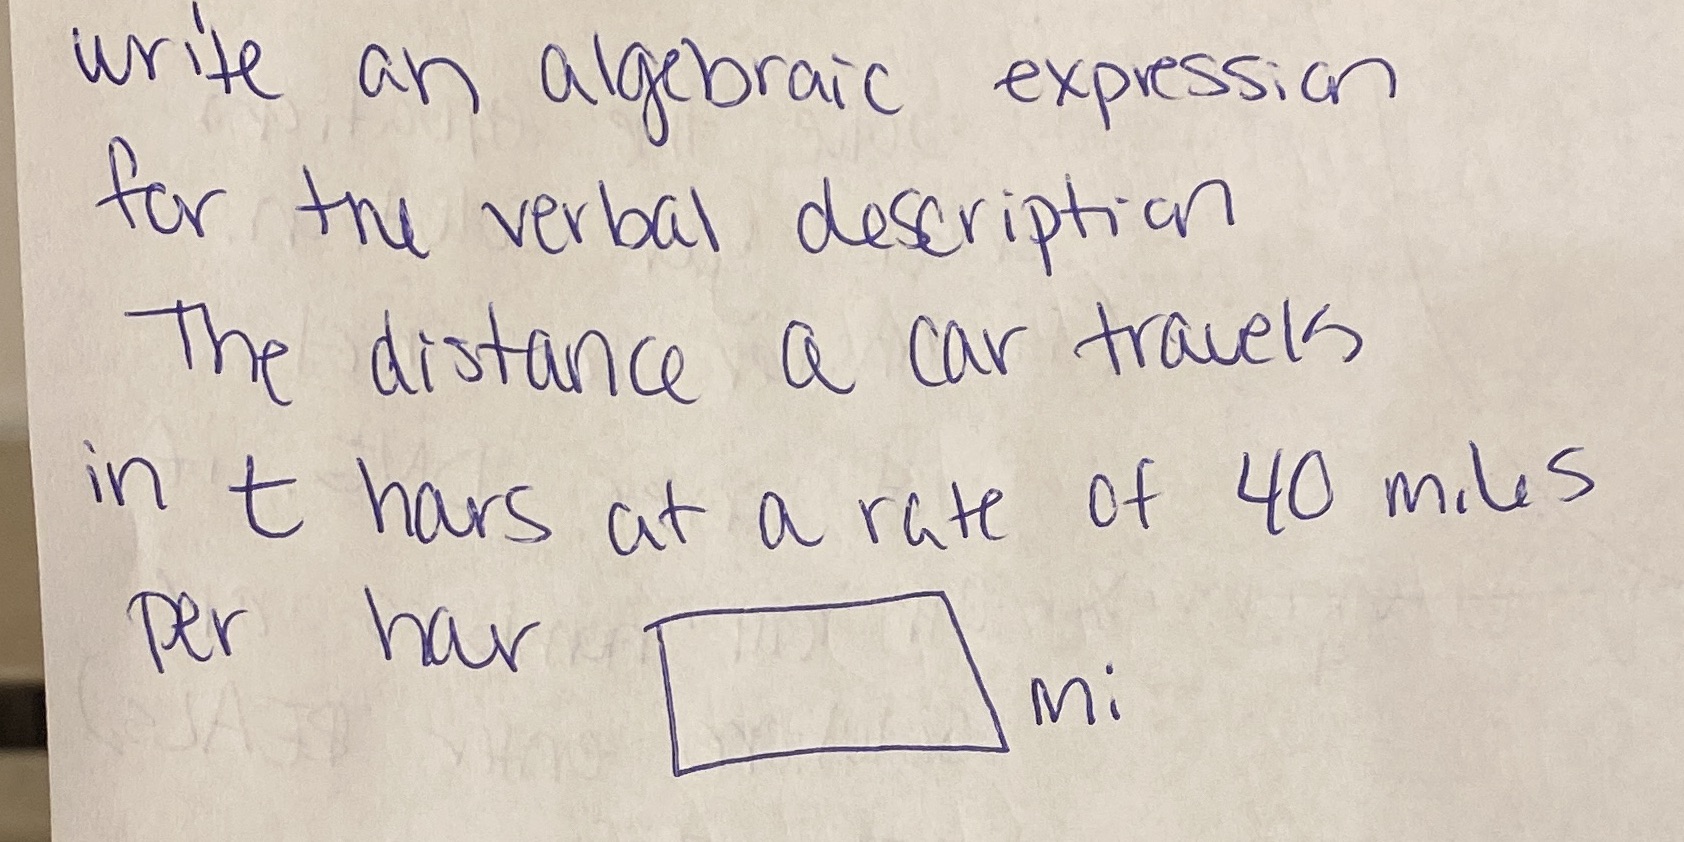 write an algebraic expression
for the verbal description
The distance a car travels
in t hours at a rate of 40 miles
per hour
mi